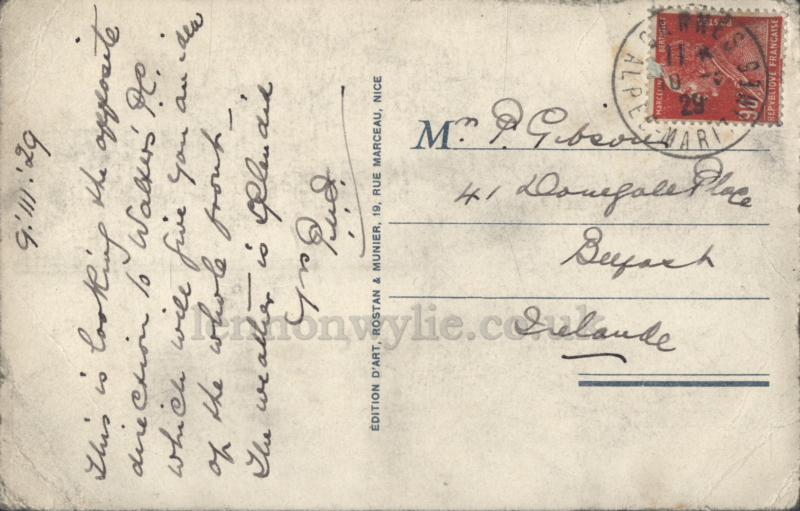 9.'III.'29
This is looking the opposite
direction to Walker's P.C.
which will give you an idea
of the whole front —
The weather is splendid
Yrs
ÉDITION D'ART, ROSTAN & MUNIER, 19, RUE MARCEAU, NICE
Mr. P. Gibson
41 Donegall Place
Belfast
Irelande
29
ALPES MARI
REPVBLIQUE FRANÇAISE
lennonwylie.co.uk